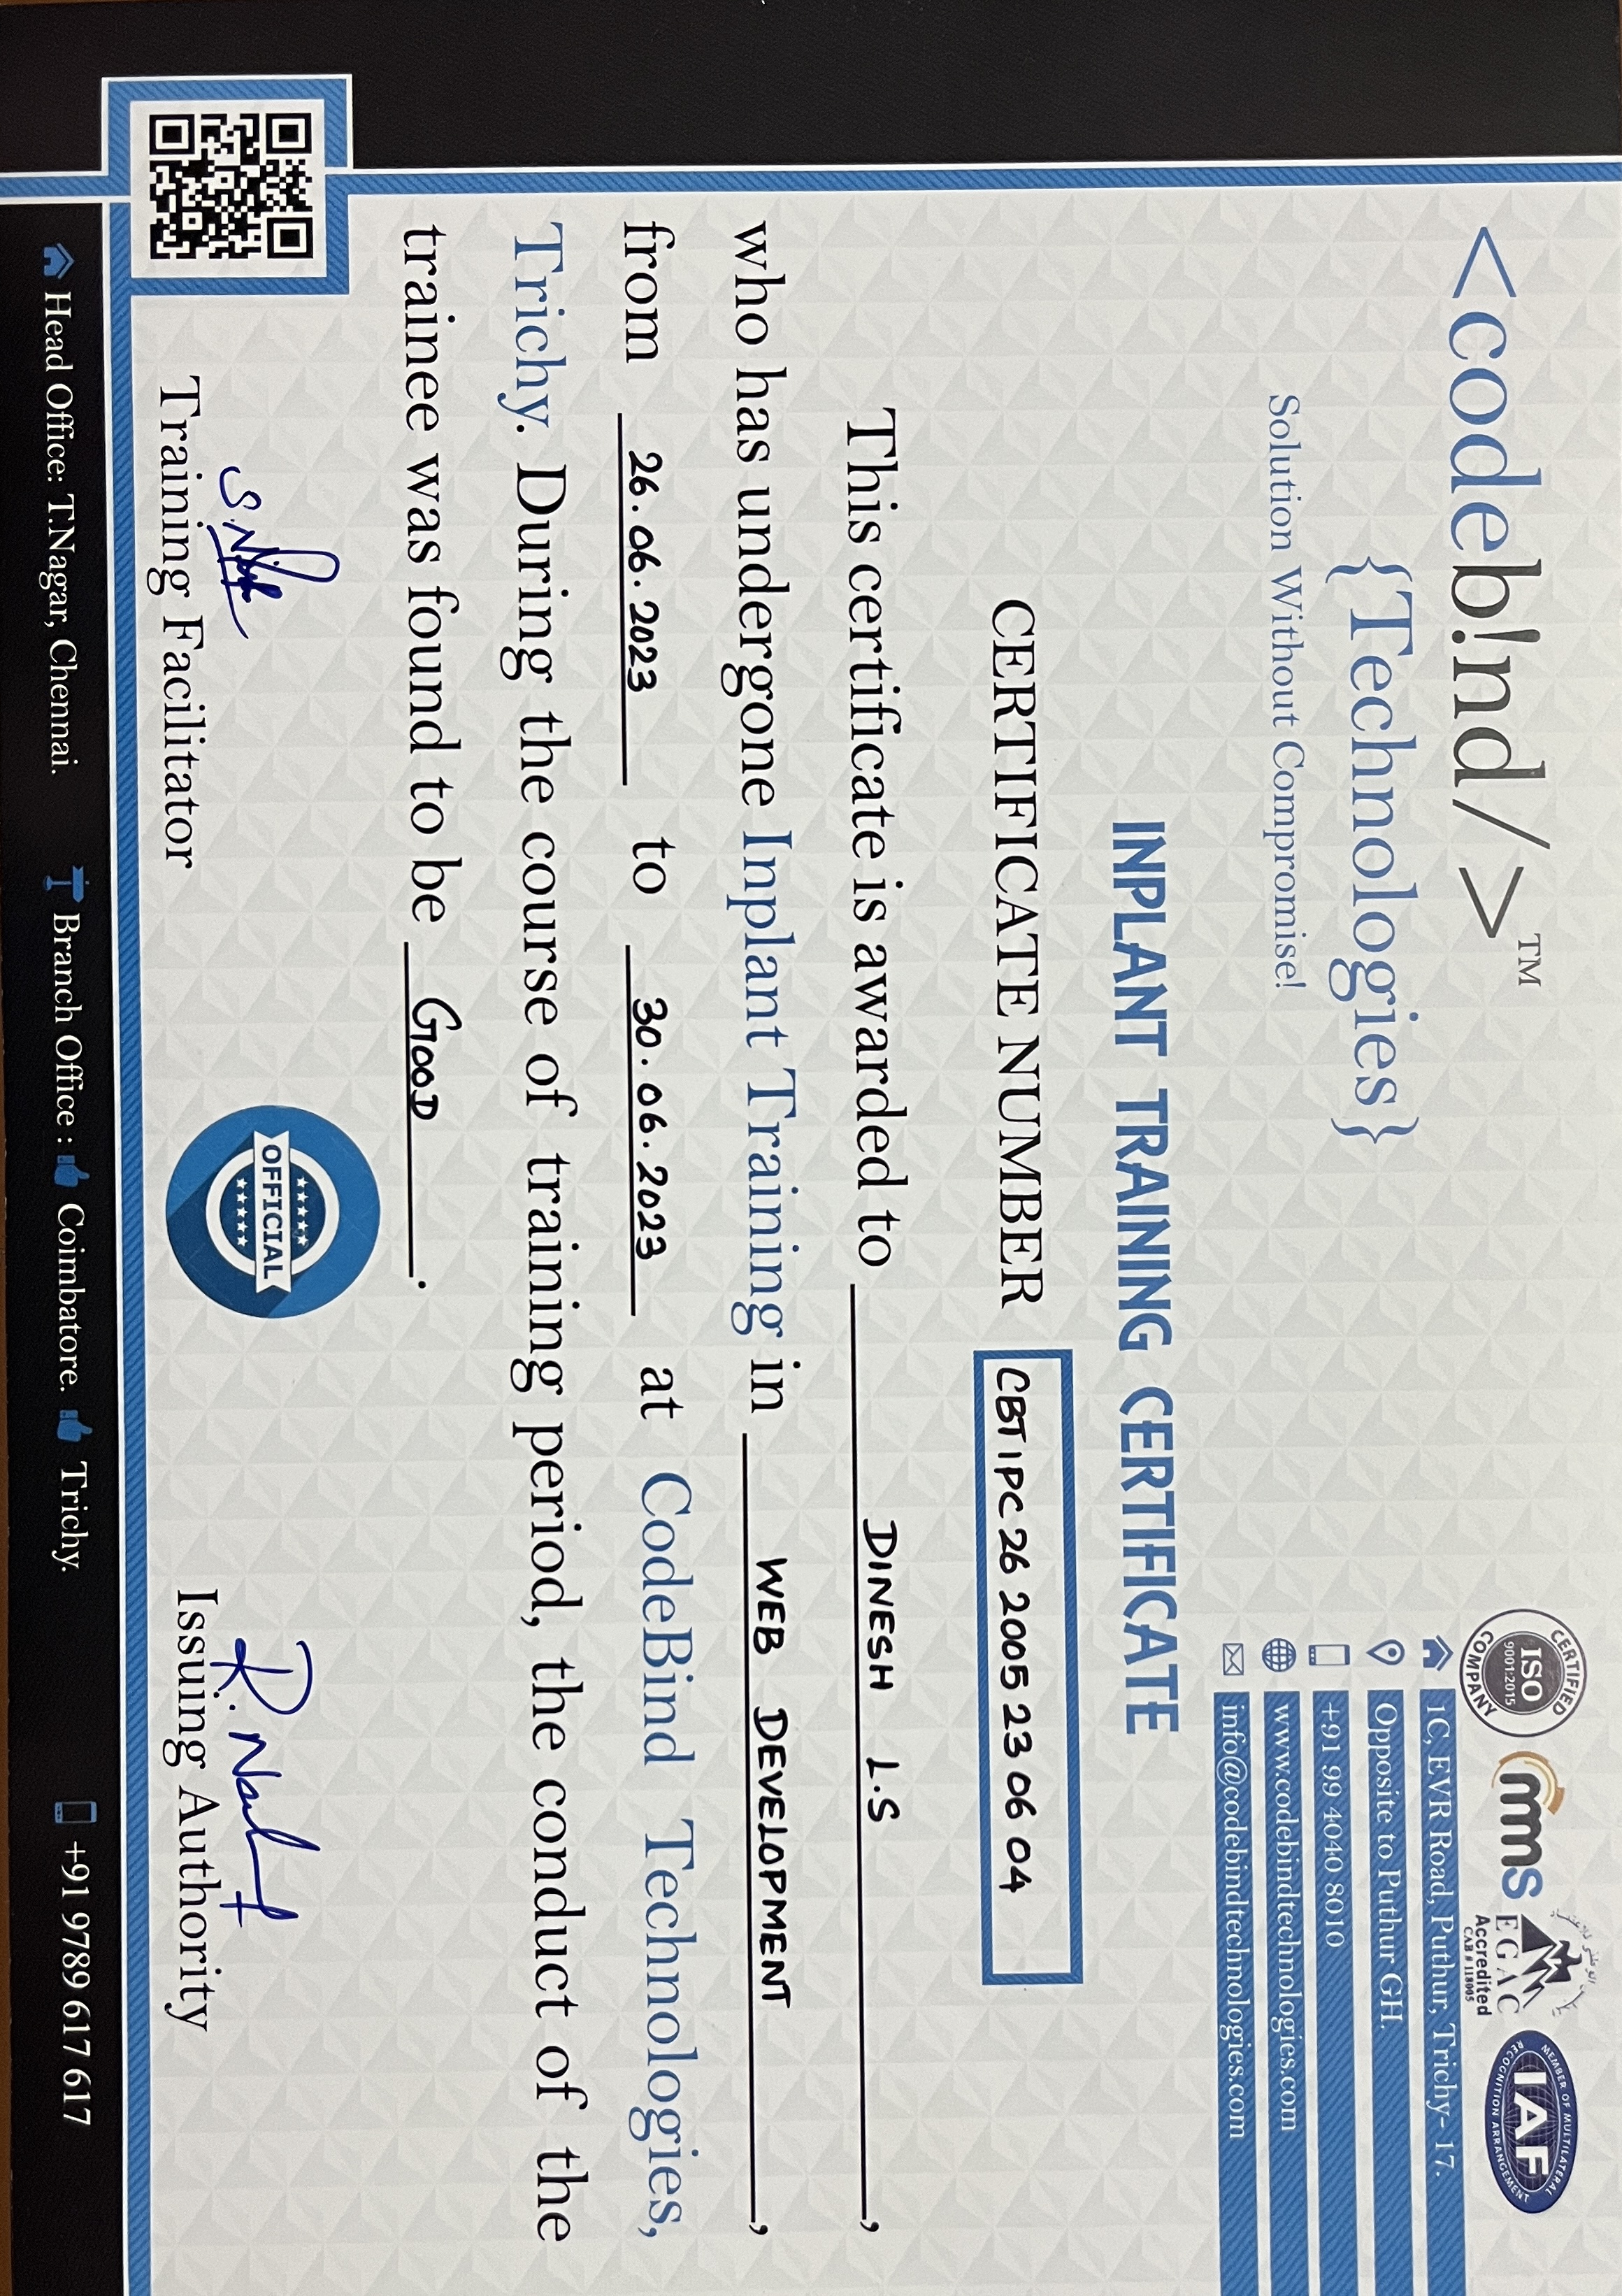 <codeb!nd/>™
{Technologies}
Solution Without Compromise!
CERTIFIED
ISO
9001:2015
COMPANY
mms
المجلس الوطني للاعتماد
EGAC
Accredited
CAB # 118005
MEMBER OF MULTILATERAL
IAF
RECOGNITION ARRANGEMENT
1C, EVR Road, Puthur, Trichy- 17.
Opposite to Puthur GH.
+91 99 4040 8010
www.codebindtechnologies.com
info@codebindtechnologies.com
INPLANT TRAINING CERTIFICATE
CERTIFICATE NUMBER CBTIPC 26 2005 23 06 04
This certificate is awarded to DINESH L.S,
who has undergone Inplant Training in WEB DEVELOPMENT,
from 26.06.2023 to 30.06.2023 at CodeBind Technologies,
Trichy. During the course of training period, the conduct of the
trainee was found to be GOOD.
OFFICIAL
Training Facilitator
Issuing Authority
Head Office: T.Nagar, Chennai. Branch Office : Coimbatore. Trichy. +91 9789 617 617